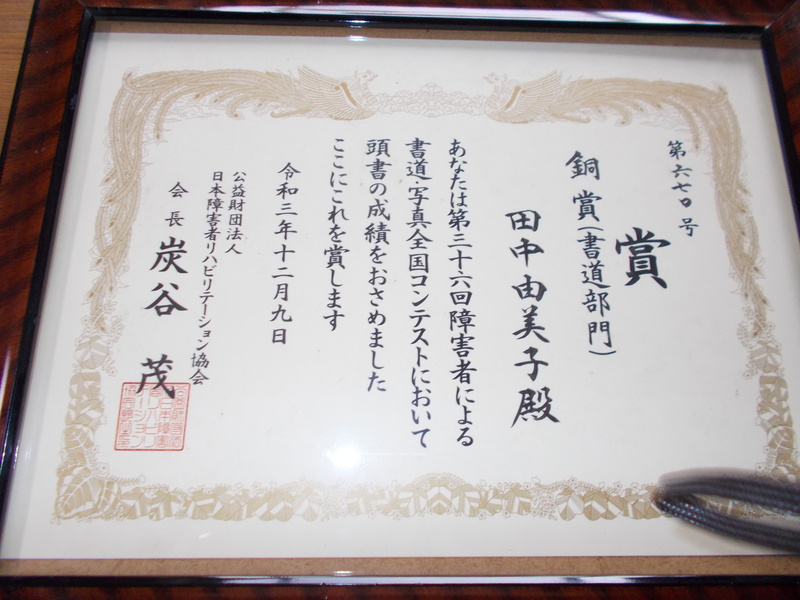 第六七〇号
賞
銅賞(書道部門)
田中由美子殿
あなたは第三十六回障害者による
書道・写真全国コンテストにおいて
頭書の成績をおさめました
ここにこれを賞します
令和三年十二月九日
公益財団法人
日本障害者リハビリテーション協会
会長 炭谷 茂